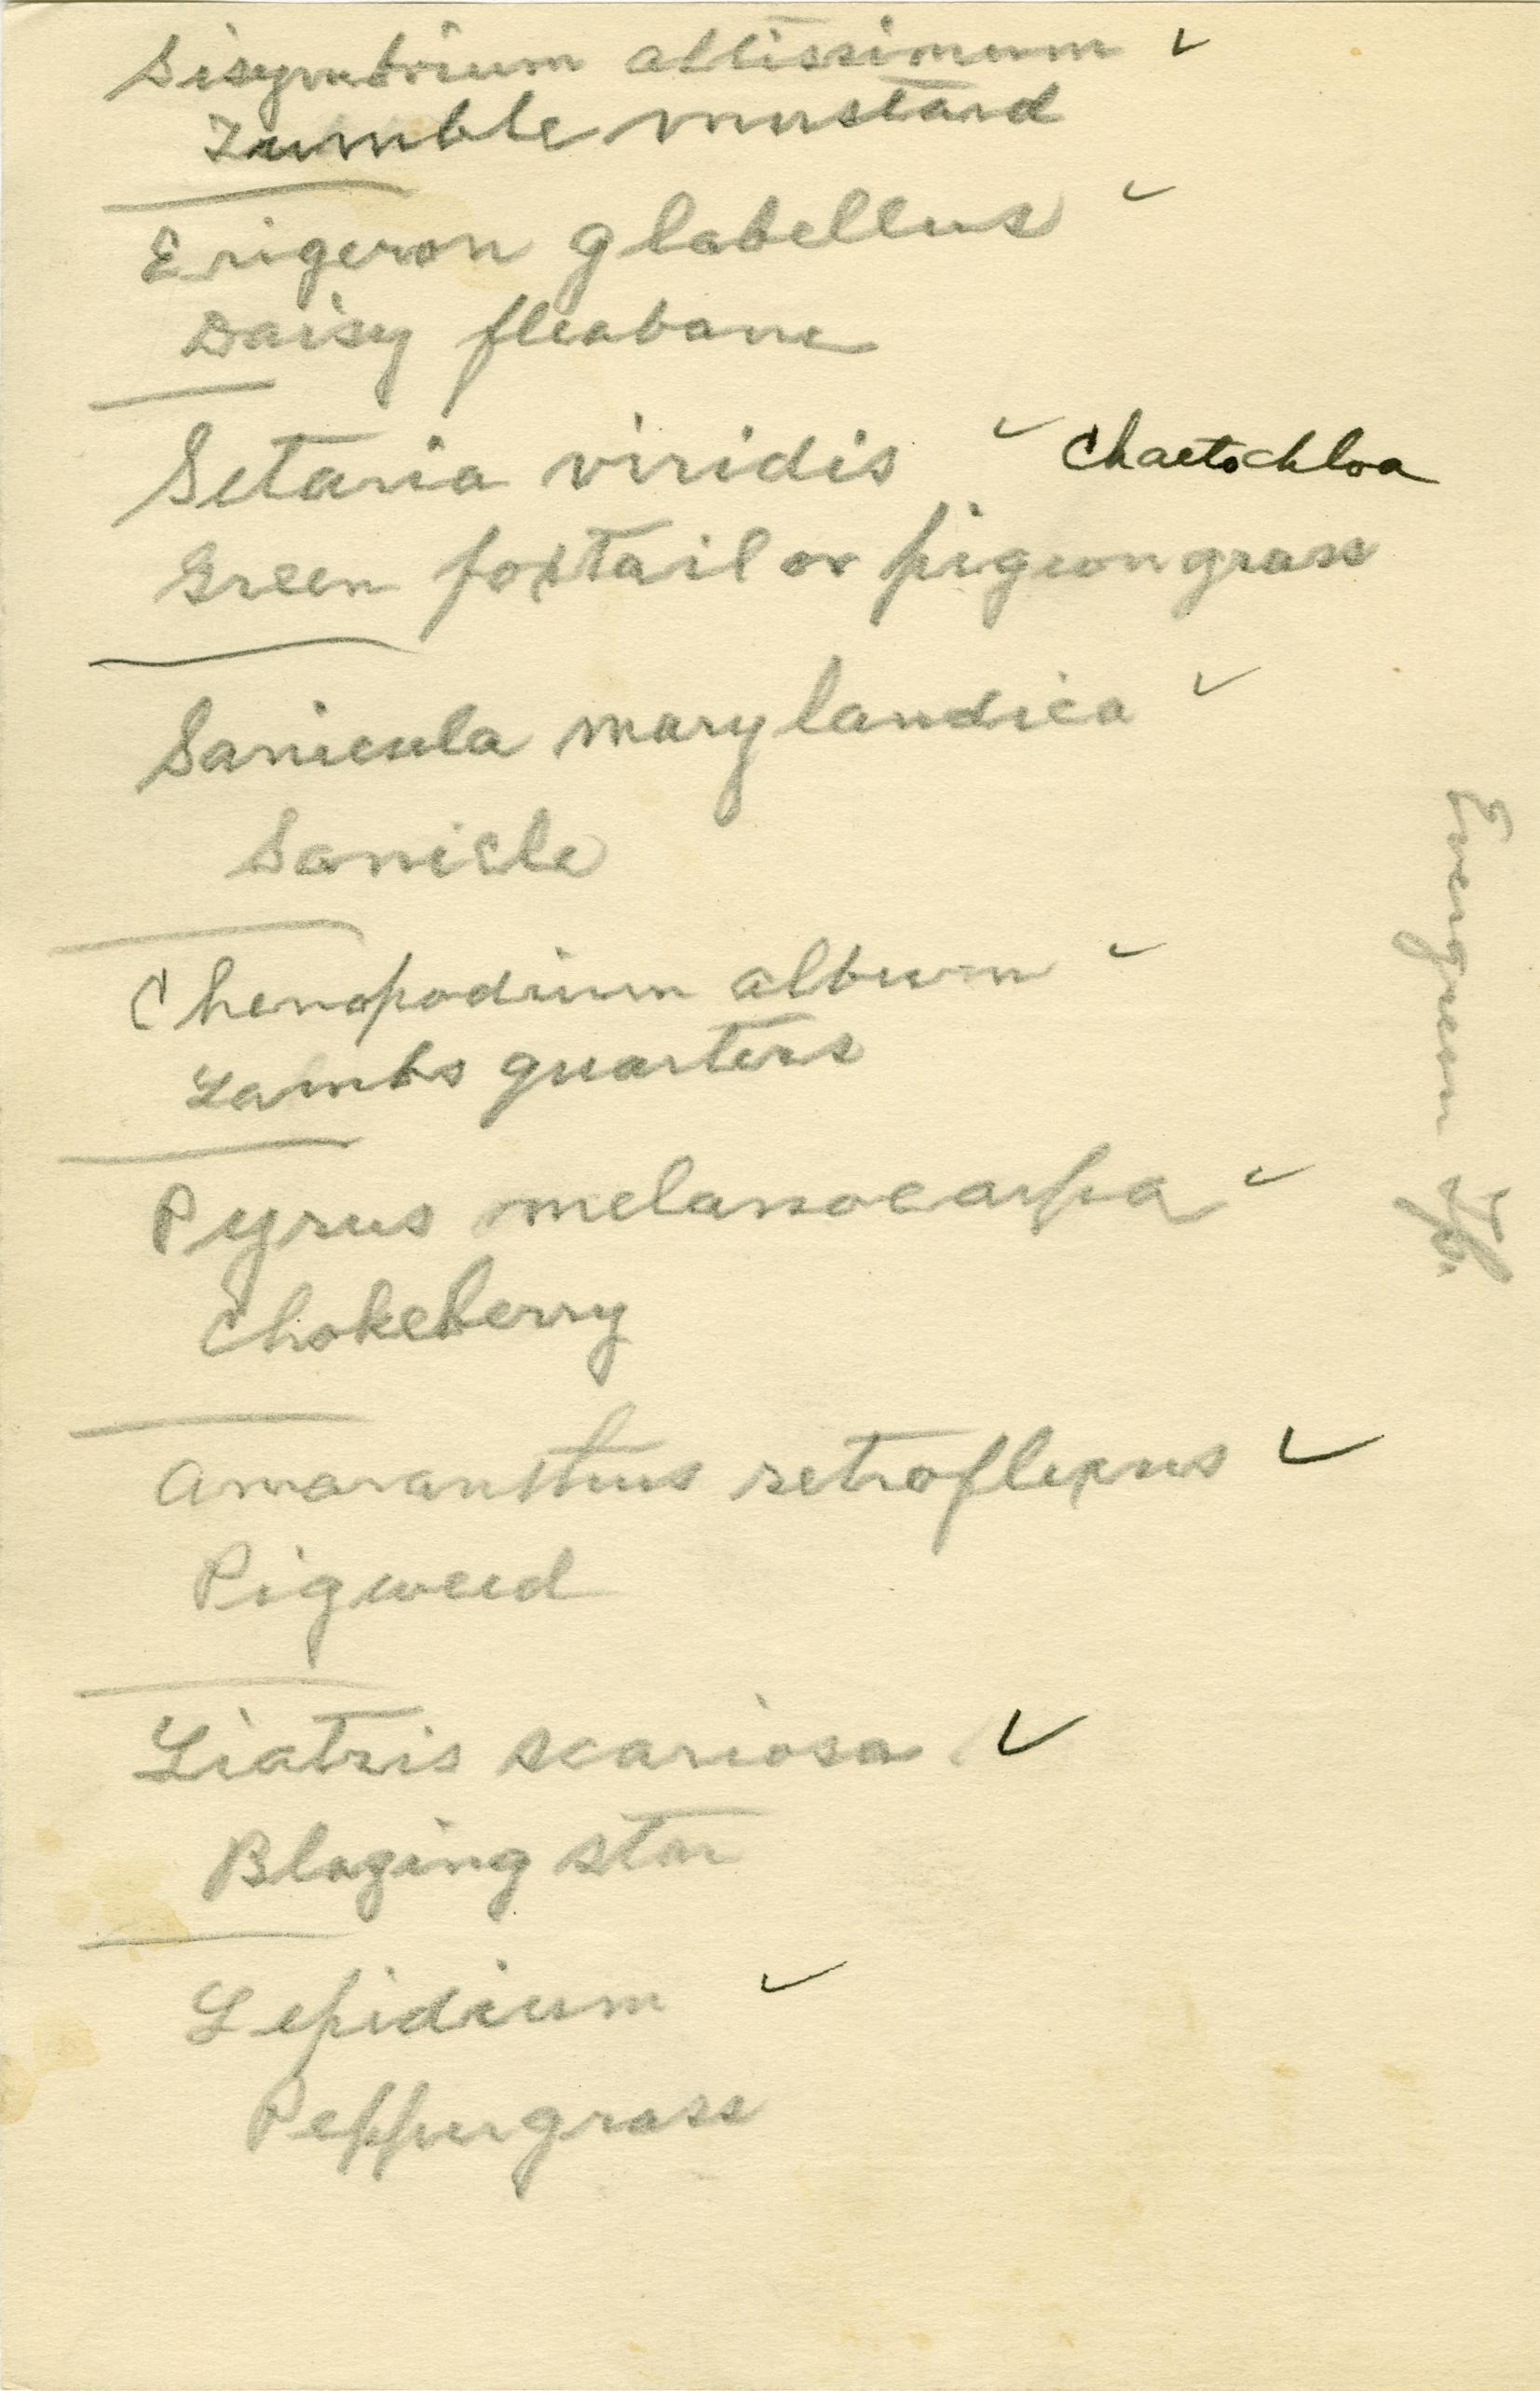 Sisymbrium altissimum ✓
Tumble mustard
Erigeron glabellus ✓
Daisy fleabane
Setaria viridis ✓ Chaetochloa
Green foxtail or pigeongrass
Sanicula marylandica ✓
Sanicle
Chenopodium album ✓
Lambs quarters
Pyrus melanocarpa ✓
Chokeberry
Amaranthus retroflexus ✓
Pigweed
Liatris scariosa ✓
Blazing star
Lepidium ✓
Peppergrass
Evergreen